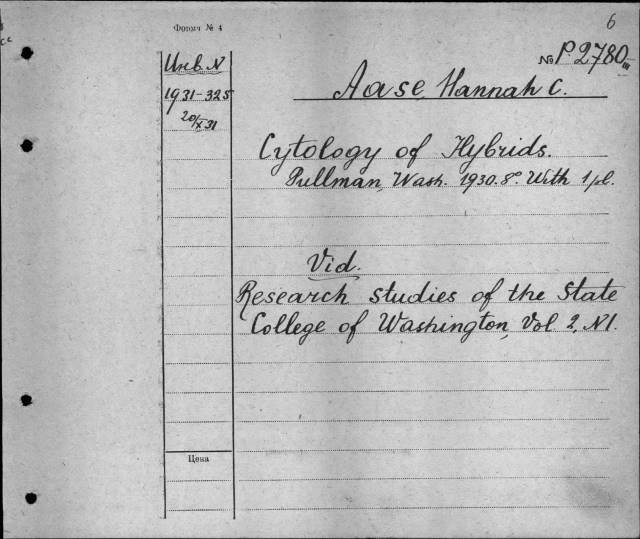 Форма № 4
6
№ P.2780 III
Инв. N
1931-325
20/X 31
Aase, Hannah C.
Cytology of Hybrids.
Pullman, Wash. 1930. 8° With 1 pl.
Vid.
Research studies of the State
College of Washington, Vol 2, N1.
Цена